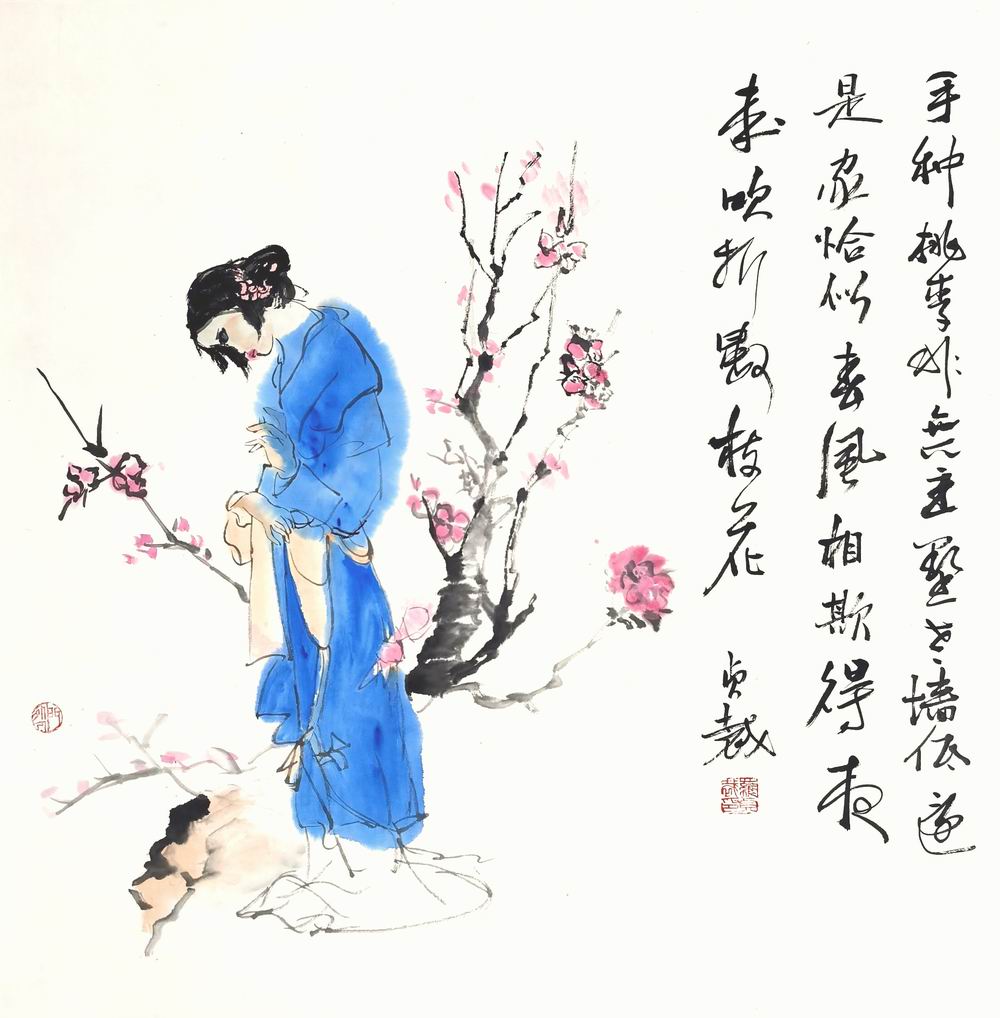 手种桃李非無主野老墙低還
是家恰似春風相欺得夜
来吹折數枝花
贞